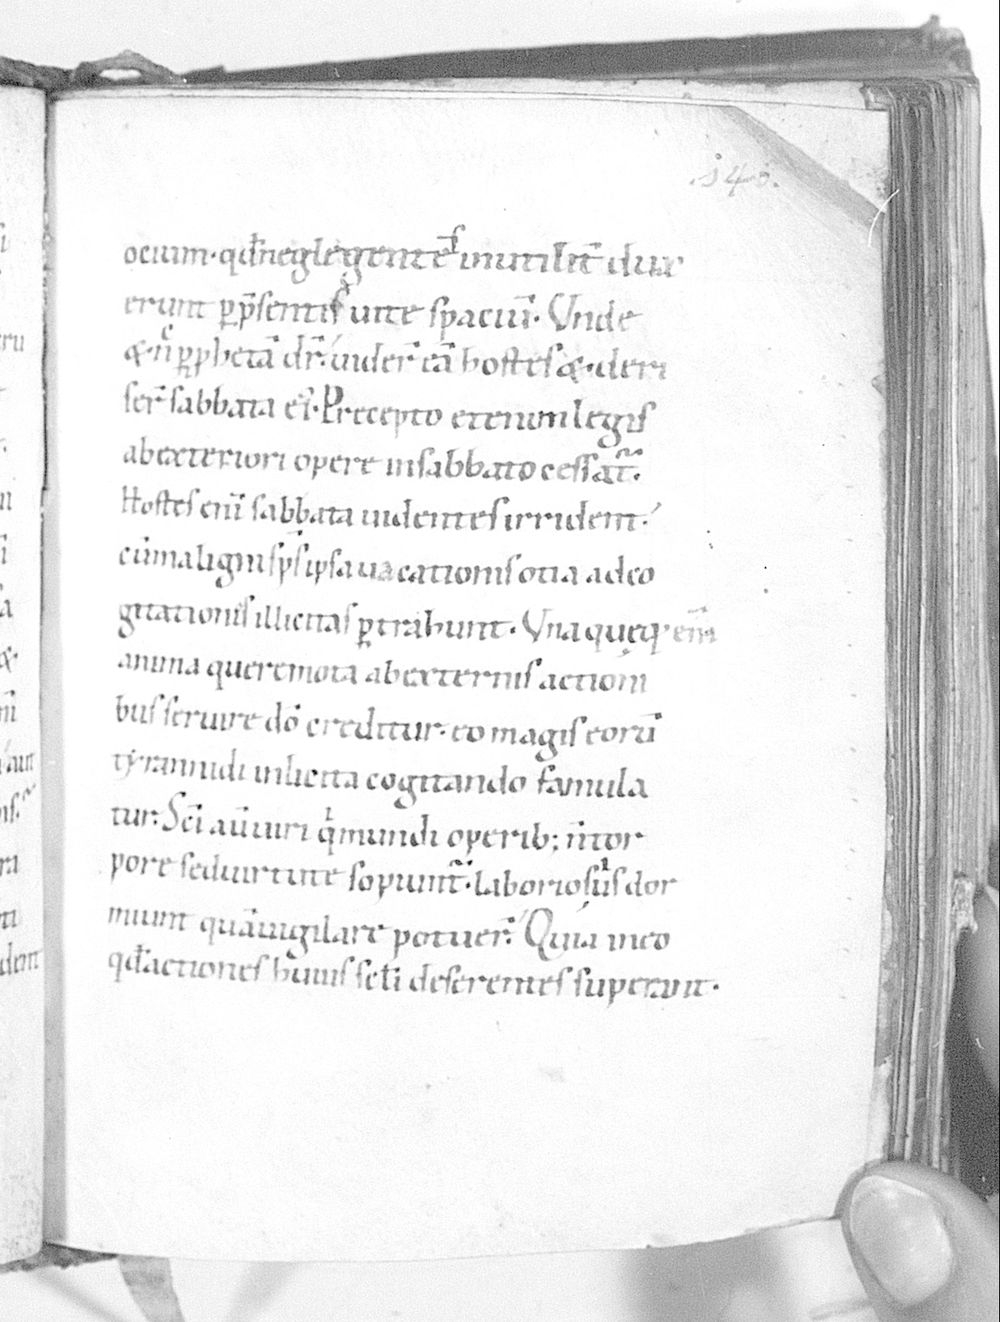 .140.
ocium· qđ neglegentes̄ inutilit̄ dux
erunt p̱ p̄sentis uite spaciū· Vnde
&·n̄ p̱ p̱hetā dr̄· uider̄ eā hostes &·deri
ser̄ sabbata ei᾿· Precepto etenim legis
ab exteriori opere insabbato cessat̄·
Hostes enī sabbata uidentes irrident·
cū maligni sp̄s ipsa uacationis otia ad co
gitationis illicitas p̱trahunt· Vna quęq; enī
anima que remota ab externis actioni
bus seruire dō creditur· eo magis eorū
tyrannidi inlicita cogitando famula
tur· Sc̄i aū uiri q̇ mundi operib; n̄ tor
pore sed uirtute sopiunt̄· laboriosius dor
miunt quā uigilare potuer̄· Quia in eo
qđ actiones huius sc̄li deserentes superant·